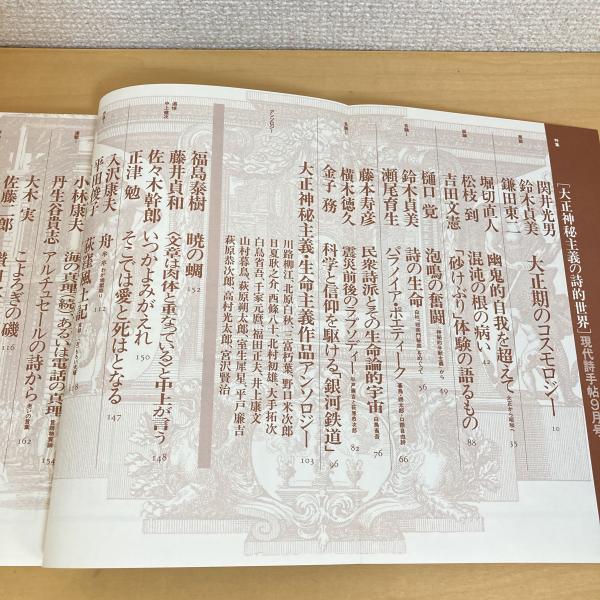 [大正神秘主義の詩的世界] 現代詩手帖9月号
特集
関井光男
鈴木貞美
大正期のコスモロジー 10
鎌田東二
幽鬼的自我を超えて 大正から昭和へ 35
堀切直人
混沌の根の病い 42
松枝 到
「砂けぶり」体験の語るもの 88
吉田文憲
樋口 覚
泡鳴の奮闘 49
鈴木貞美
詩の生命 56
瀬尾育生
パラノイア・ポエティーク 66
藤本寿彦
民衆詩派とその生命論的宇宙 76
横木徳久
震災前後のラプソディー 82
金子 務
科学と信仰を駆ける「銀河鉄道」 96
アンソロジー
大正神秘主義・生命主義作品アンソロジー 103
川路柳江、北原白秋、三富朽葉、野口米次郎
日夏耿之介、西條八十、北村初雄、大手拓次
白鳥省吾、千家元麿、福田正夫、井上康文
山村暮鳥、萩原朔太郎、室生犀星、平戸廉吉
萩原恭次郎、高村光太郎、宮沢賢治
追悼
中上健次
福島泰樹
暁の蜩 152
藤井貞和
〈文章は肉体と重なっている〉と中上が言う 148
佐々木幹郎
いつかよみがえれ 150
正津 勉
そこでは愛と死はとなる 147
入沢康夫
舟
平田俊子
荻窪風土記 112
小林康夫
海の真理(続)
あるいは電話の真理 154
丹生谷貴志
アルチュセールの詩から 162
大木 実
こよろぎの磯 116
佐藤